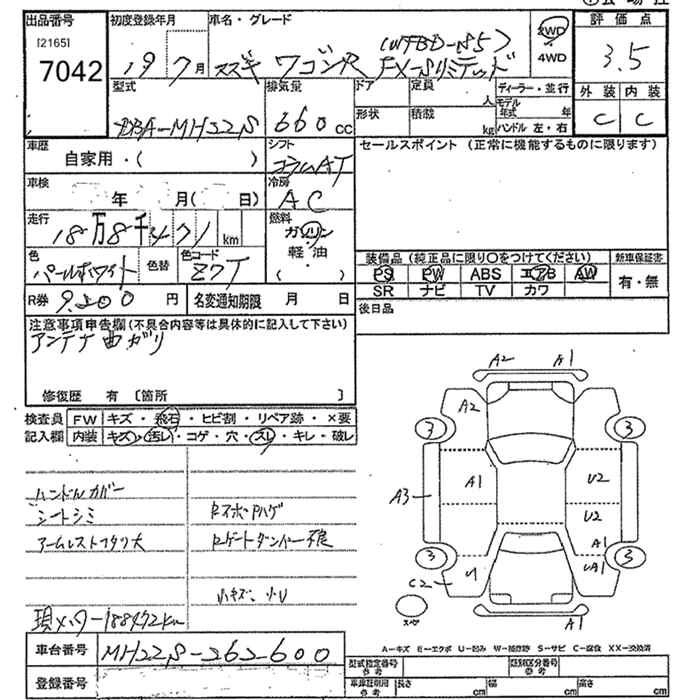 出品番号 初度登録年月 車名・グレード
[2165]
7042
19 7月 スズキ ワゴンR (WFBD-S5)
FX-Sリミテッド
2WD
4WD
評価点
3.5
外装 内装
C C
型式 排気量 ドア 定員 人 ディーラー・並行
DBA-MH22S 660cc 形状 積載 kg モデル年式 年
ハンドル 左・右
車歴 シフト セールスポイント (正常に機能するものに限ります)
自家用・( ) コラムAT
車検 冷房
年 月( 日) AC
走行 燃料
18万8千471km ガソリン
軽・油
( ・ )
色 色替 色コード
パールホワイト Z7T
装備品 (純正品に限り〇をつけてください) 新車保証書
PS PW ABS エアB AW 有・無
SR ナビ TV カワ
R券 9,200円 名変通知期限 月 日
後日品
注意事項申告欄(不具合内容等は具体的に記入して下さい)
アンテナ曲ガリ
修復歴 有 〔箇所 〕
検査員 FW キズ・飛石・ヒビ割・リペア跡・×要
記入欄 内装 キズ・汚レ・コゲ・穴・スレ・キレ・破レ
ハンドルカバー
シートシミ
アームレストフタ欠
RスポPハゲ
Rゲートダンパー不良
小キズ、小U
現メーター188472km
A2 A1
A2
3 3
A1 U2
A3
U2
A1
3 3
C2 U1 UA1
スペア
A1
A-キズ E-エクボ U-凹み W-補修跡 S-サビ C-腐食 XX-交換済
車台番号 MH22S-262600
登録番号
型式指定番号 参考 類別区分番号 参考
車庫証明用 参考 長さ cm 幅 cm 高さ cm